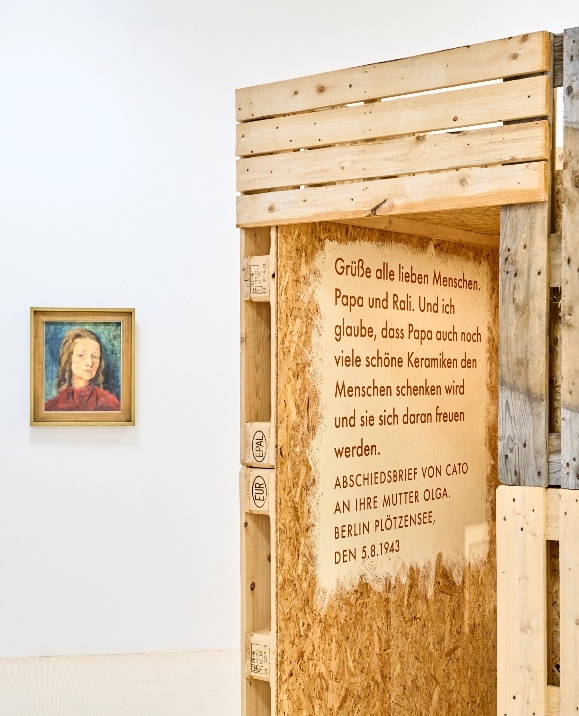 Grüße alle lieben Menschen.
Papa und Rali. Und ich
glaube, dass Papa auch noch
viele schöne Keramiken den
Menschen schenken wird
und sie sich daran freuen
werden.
ABSCHIEDSBRIEF VON CATO
AN IHRE MUTTER OLGA.
BERLIN PLÖTZENSEE,
DEN 5.8.1943
EPAL
EUR